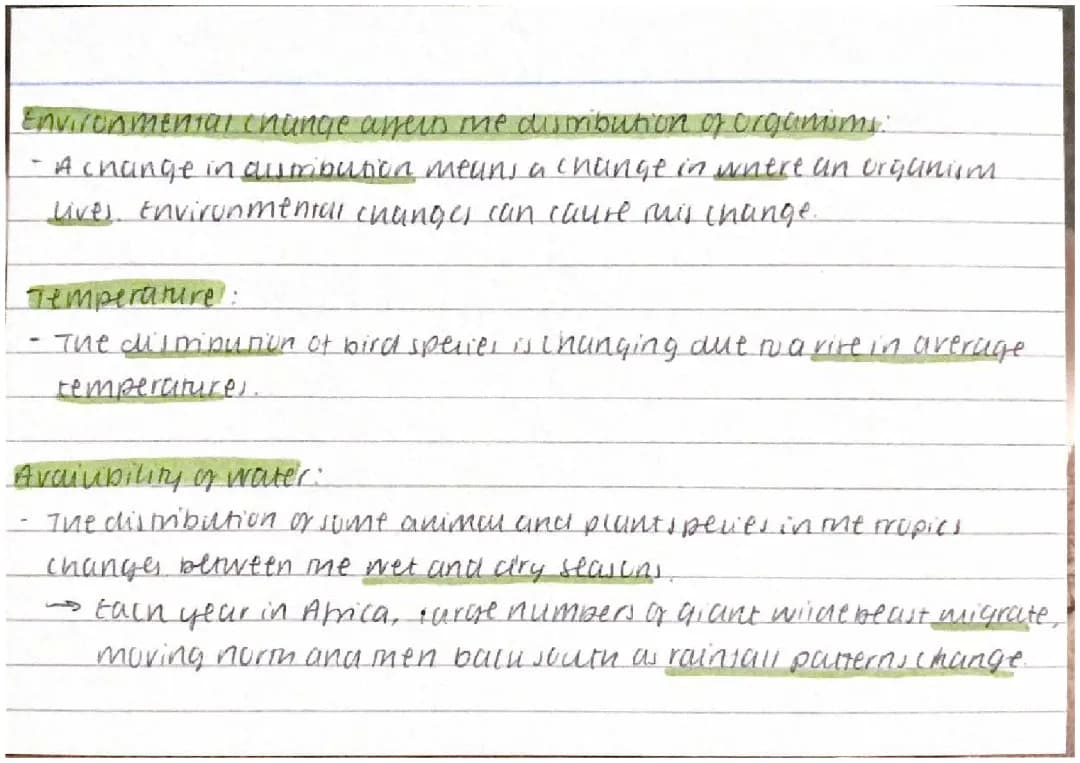 Environmental change affects the distribution of organisms:
- A change in distribution means a change in where an organism
lives. Environmental changes can cause this change.
Temperature:
- The distribution of bird species is changing due to a rise in average
temperatures.
Availability of water:
- The distribution of some animal and plant species in the tropics
changes between the wet and dry seasons.
→ Each year in Africa, large numbers of giant wildebeast migrate,
moving north and then back south as rainfall patterns change.